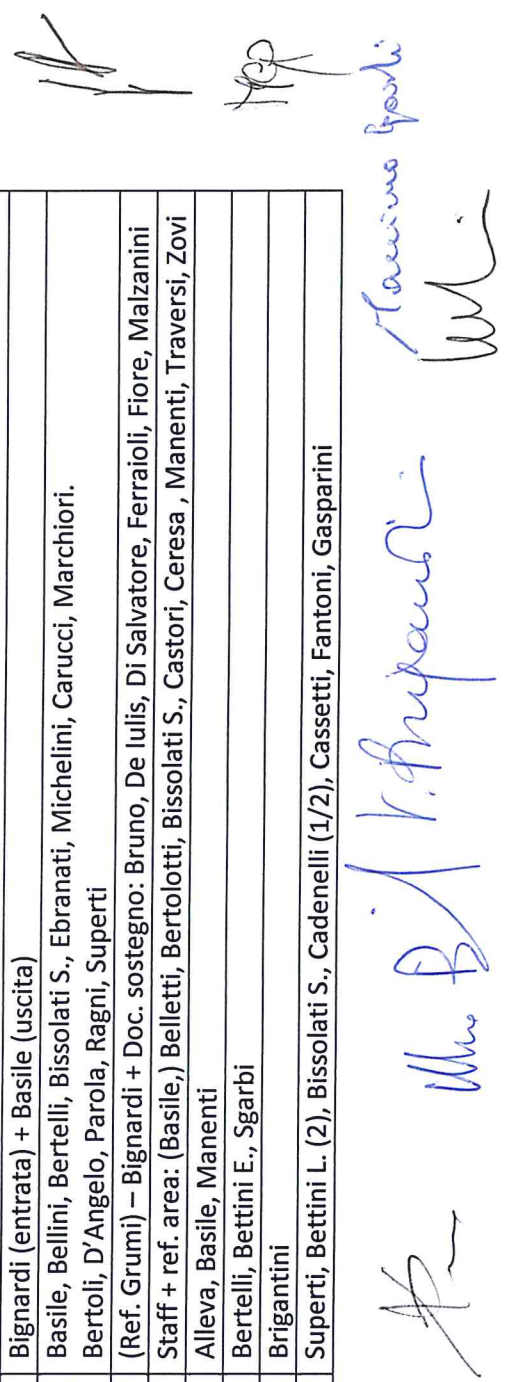 Bignardi (entrata) + Basile (uscita)
Basile, Bellini, Bertelli, Bissolati S., Ebranati, Michelini, Carucci, Marchiori.
Bertoli, D'Angelo, Parola, Ragni, Superti
(Ref. Grumi) – Bignardi + Doc. sostegno: Bruno, De Iulis, Di Salvatore, Ferraioli, Fiore, Malzanini
Staff + ref. area: (Basile,) Belletti, Bertolotti, Bissolati S., Castori, Ceresa , Manenti, Traversi, Zovi
Alleva, Basile, Manenti
Bertelli, Bettini E., Sgarbi
Brigantini
Superti, Bettini L. (2), Bissolati S., Cadenelli (1/2), Cassetti, Fantoni, Gasparini